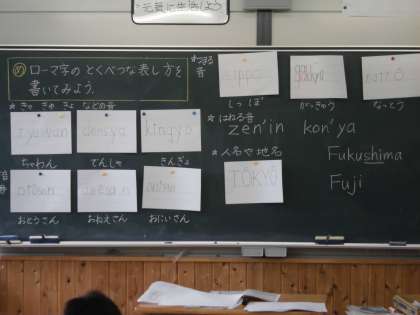 元気に生活しよう
め ローマ字の とくべつな表し方を
書いてみよう。
★つまる
音
sippo
gakkyû
nattô
しっぽ
がっきゅう
なっとう
★きゃ きゅ きょ などの音
tyawan
densya
kingyo
ちゃわん
でんしゃ
きんぎょ
★はねる音
zen'in kon'ya
★人名や地名
TÔKYÔ
Fukushima
Fuji
音
otôsan
onêsan
onîsan
おとうさん
おねえさん
おにいさん